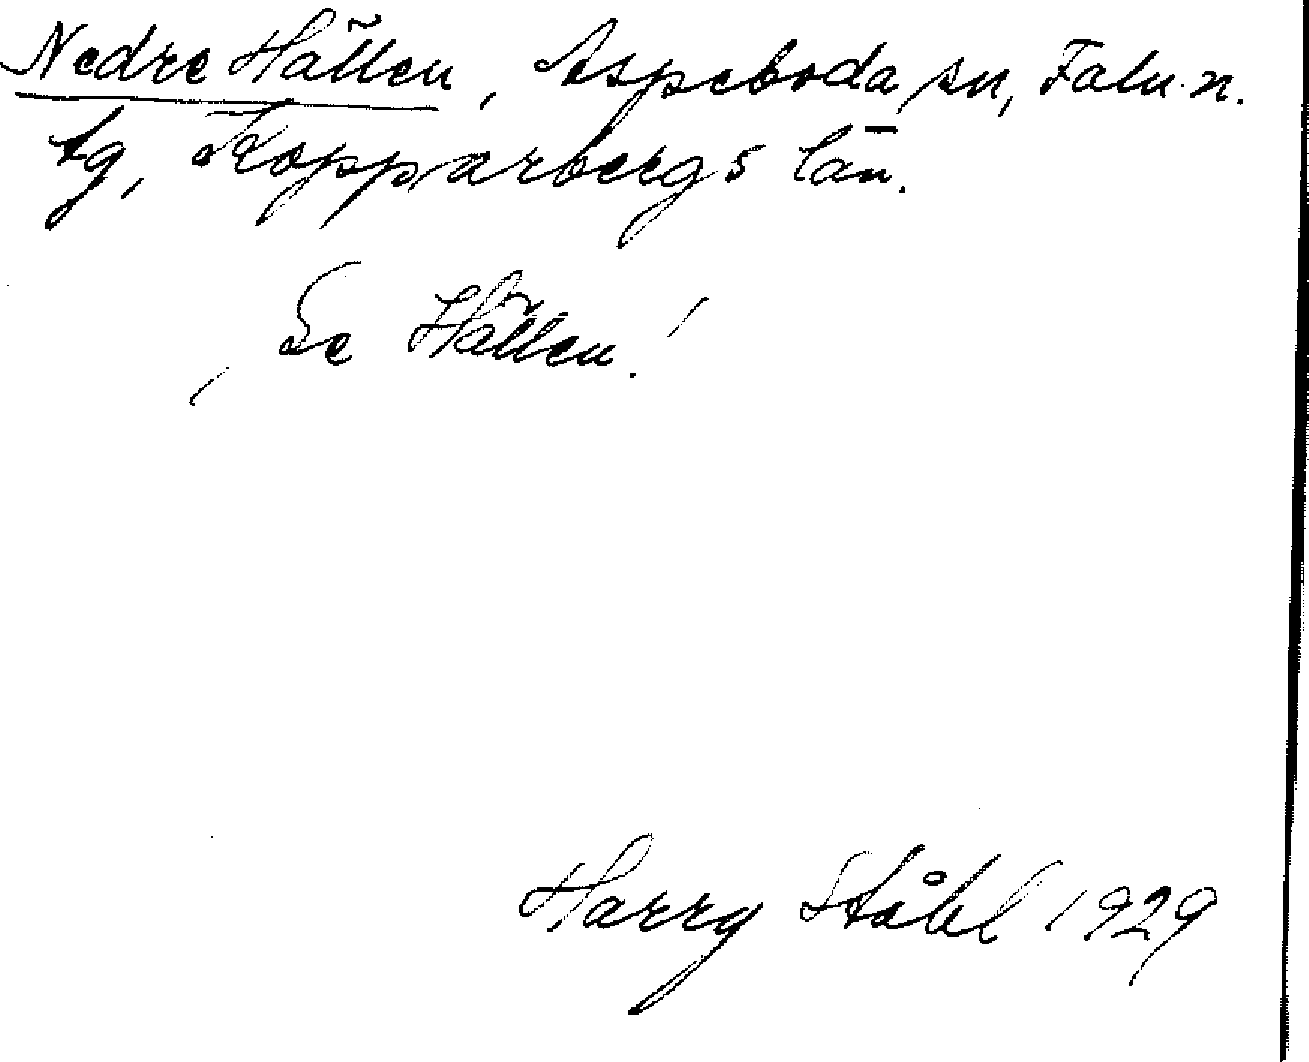 Nedre Hällen, Aspeboda sn, Falu n.
tg, Kopparbergs län.
Se Hällen!
Harry Ståhl 1929